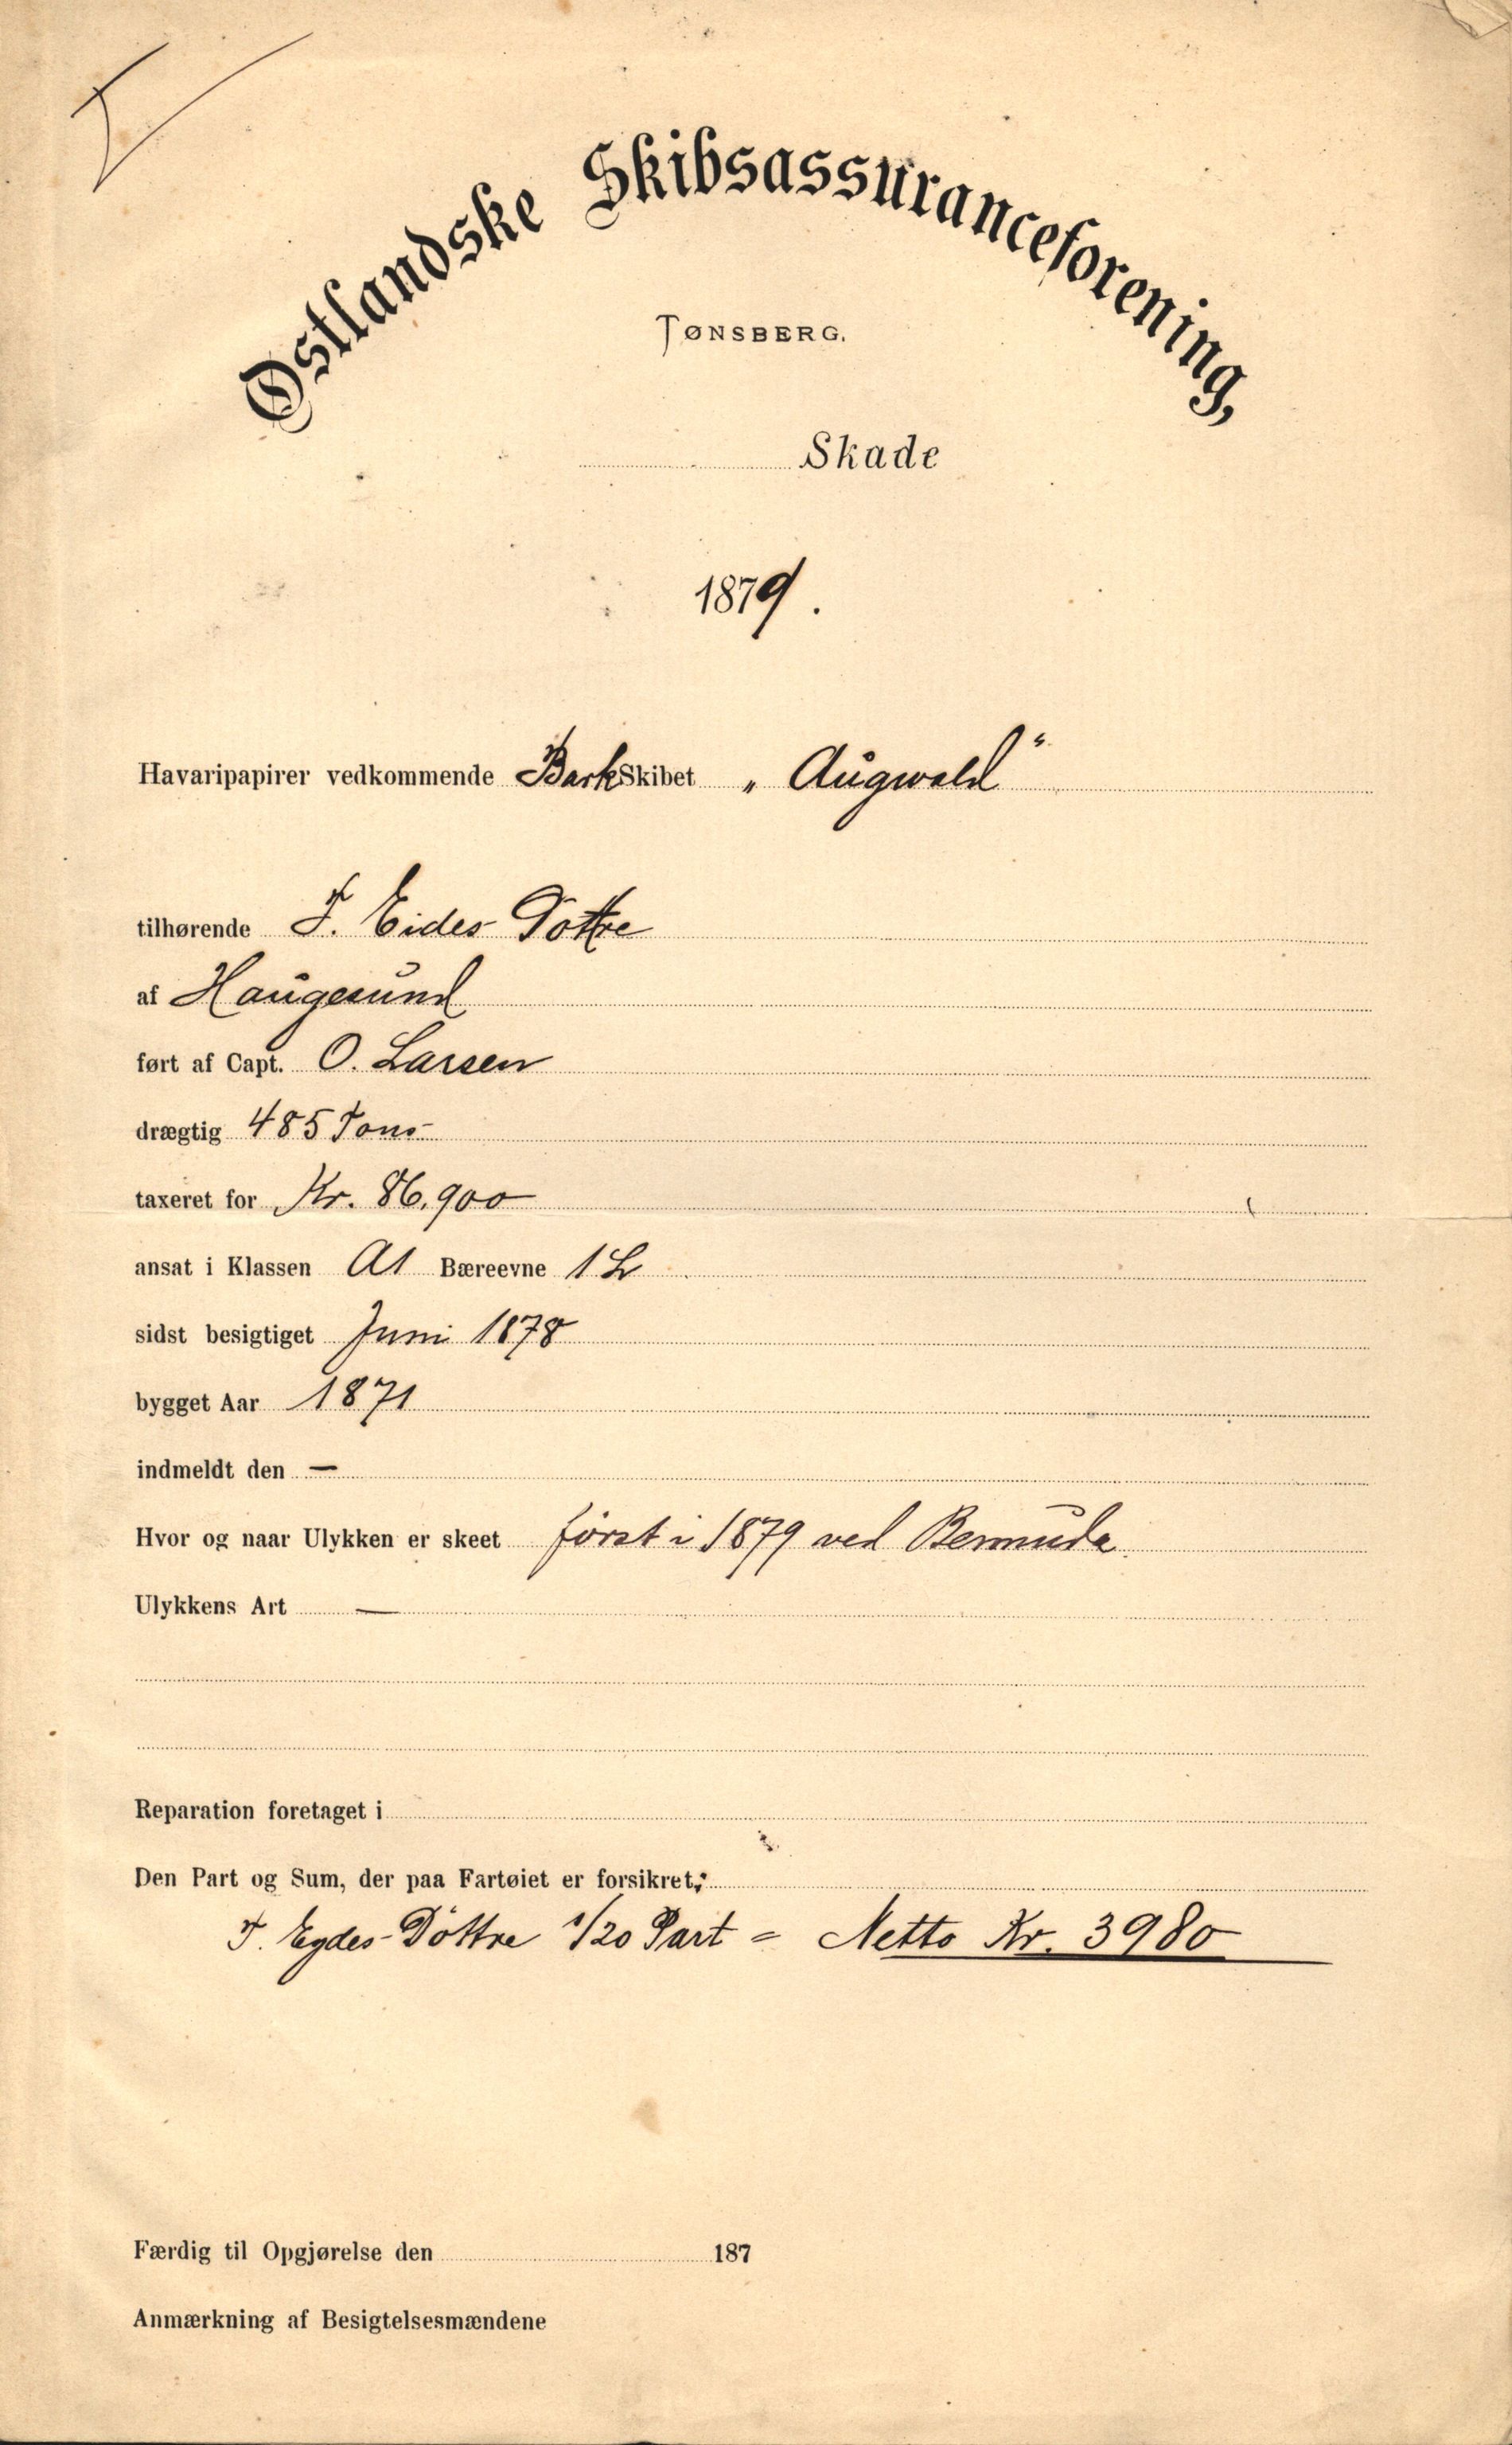 Østlandske Skibsassuranceforening,
TØNSBERG.
Skade
1879.
Havaripapirer vedkommende BarkSkibet „Augwald“
tilhørende T. Eides Döttre
af Haugesund
ført af Capt. O. Larsen
drægtig 485 Tons
taxeret for Kr. 86,900
ansat i Klassen A1 Bæreevne 1 L
sidst besigtiget Juni 1878
bygget Aar 1871
indmeldt den —
Hvor og naar Ulykken er skeet först i 1879 ved Bermuda.
Ulykkens Art —
Reparation foretaget i
Den Part og Sum, der paa Fartøiet er forsikret;
T. Eydes Döttre 1/20 Part = Netto Kr. 3980
Færdig til Opgjørelse den 187
Anmærkning af Besigtelsesmændene